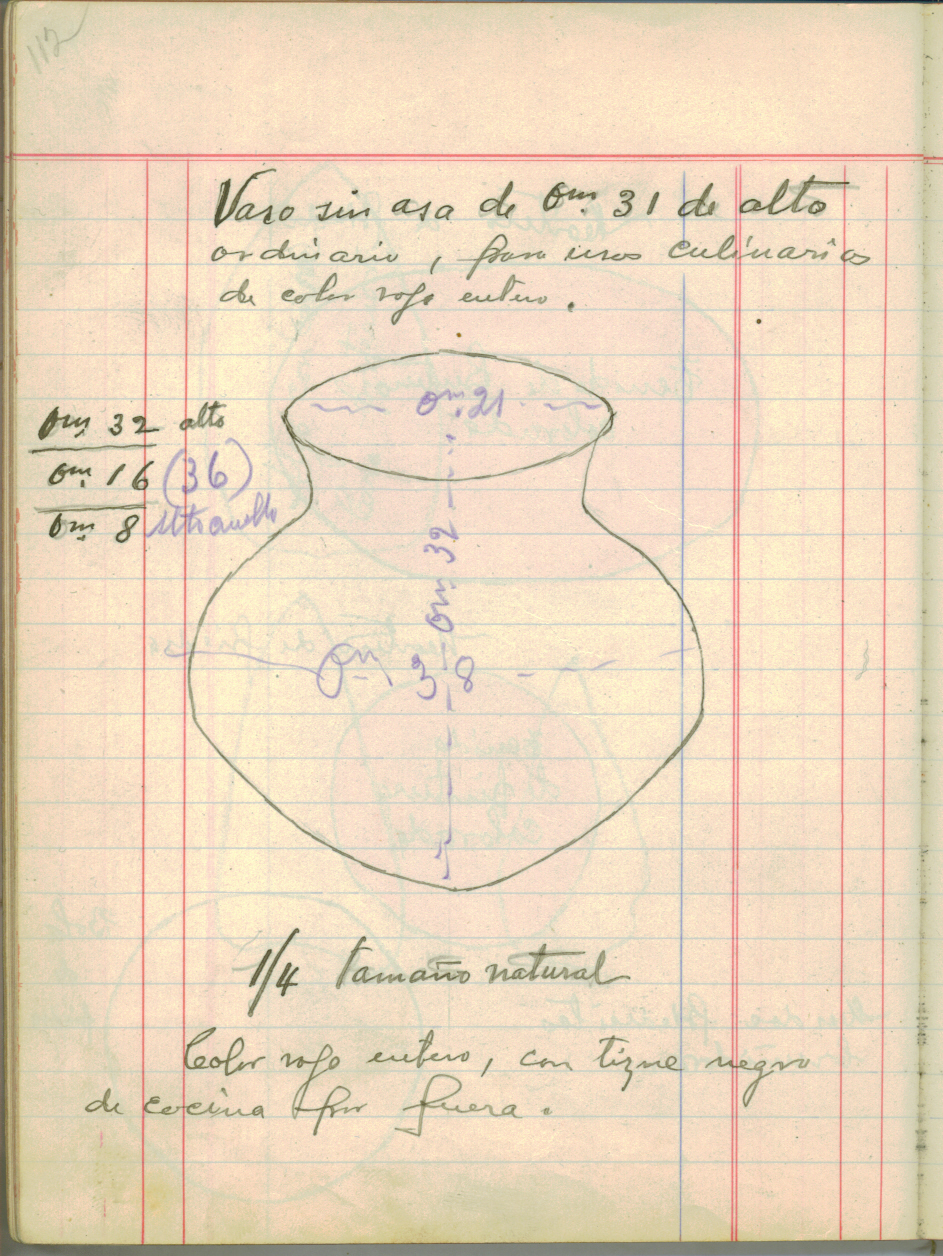 112
Vaso sin asa de 0m. 31 de alto
ordinario, para usos culinarios
de color rojo entero.
0m. 21
0m. 32 alto
0m. 16 (36)
0m. 8
0m 32
0m 38
1/4 tamaño natural
Color rojo entero, con tizne negro
de cocina por fuera.